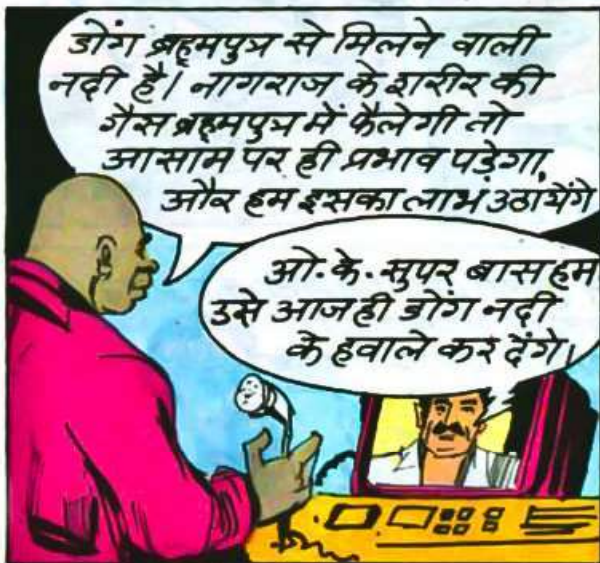 डोंग ब्रह्मपुत्र से मिलने वाली
नदी है। नागराज के शरीर की
गैस ब्रह्मपुत्र में फैलेगी तो
आसाम पर ही प्रभाव पड़ेगा,
और हम इसका लाभ उठायेंगे
ओ.के. सुपर बास हम
उसे आज ही डोंग नदी
के हवाले कर देंगे।